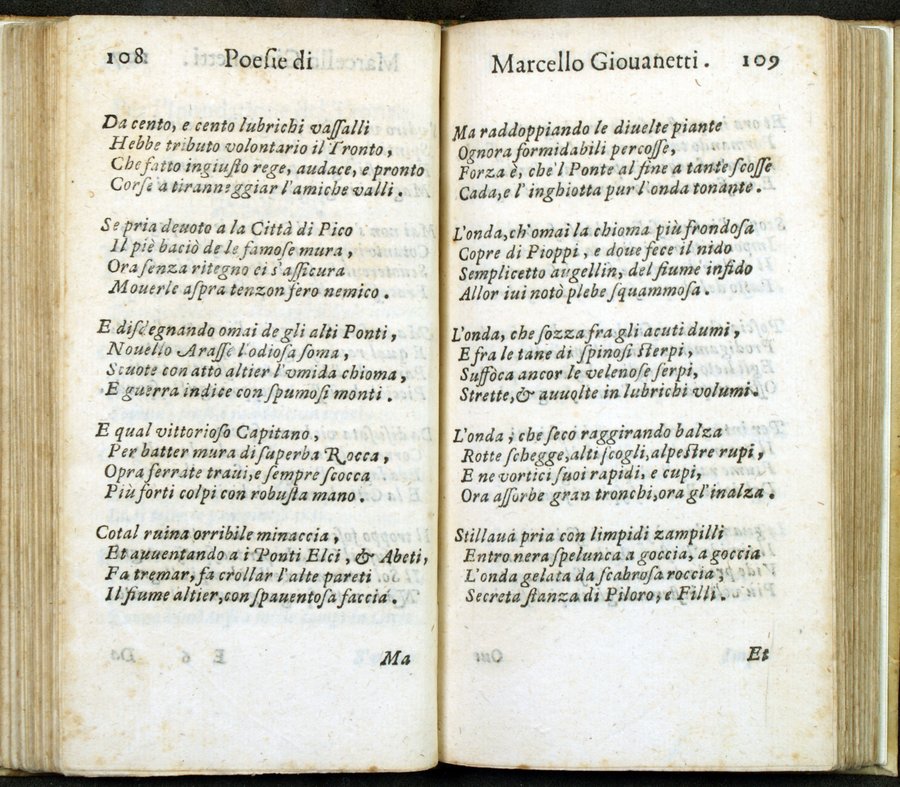 108 Poeſie di
Da cento, e cento lubrichi vaſſalli
Hebbe tributo volontario il Tronto,
Che fatto ingiuſto rege, audace, e pronto
Corſe à tiranneggiar l'amiche valli.
Se pria deuoto a la Città di Pico
Il piè baciò de le famoſe mura,
Ora ſenza ritegno ei s'aſſicura
Mouerle aſpra tenzon fero nemico.
E diſdegnando omai de gli alti Ponti,
Nouello Araſſe l'odioſa ſoma,
Scuote con atto altier l'vmida chioma,
E guerra indice con ſpumoſi monti.
E qual vittorioſo Capitano,
Per batter mura di ſuperba Rocca,
Opra ferrate traui, e ſempre ſcocca
Più forti colpi con robuſta mano.
Cotal ruina orribile minaccia,
Et auuentando a i Ponti Elci, & Abeti,
Fa tremar, fa crollar l'alte pareti
Il fiume altier, con ſpauentoſa faccia.
Ma
Marcello Giouanetti. 109
Ma raddoppiando le diuelte piante
Ognora formidabili percoſſe,
Forza è, che'l Ponte al fine a tante ſcoſſe
Cada, e l'inghiotta pur l'onda tonante.
L'onda, ch'omai la chioma più frondoſa
Copre di Pioppi, e doue fece il nido
Semplicetto augellin, del fiume infido
Allor iui notò plebe ſquammoſa.
L'onda, che ſozza fra gli acuti dumi,
E fra le tane di ſpinoſi ſterpi,
Suffòca ancor le velenoſe ſerpi,
Strette, & auuolte in lubrichi volumi.
L'onda, che ſeco raggirando balza
Rotte ſchegge, alti ſcogli, alpeſtre rupi,
E ne vortici ſuoi rapidi, e cupi,
Ora aſſorbe gran tronchi, ora gl'inalza.
Stillaua pria con limpidi zampilli
Entro nera ſpelunca a goccia, a goccia
L'onda gelata da ſcabroſa roccia,
Secreta ſtanza di Piloro, e Filli.
Et